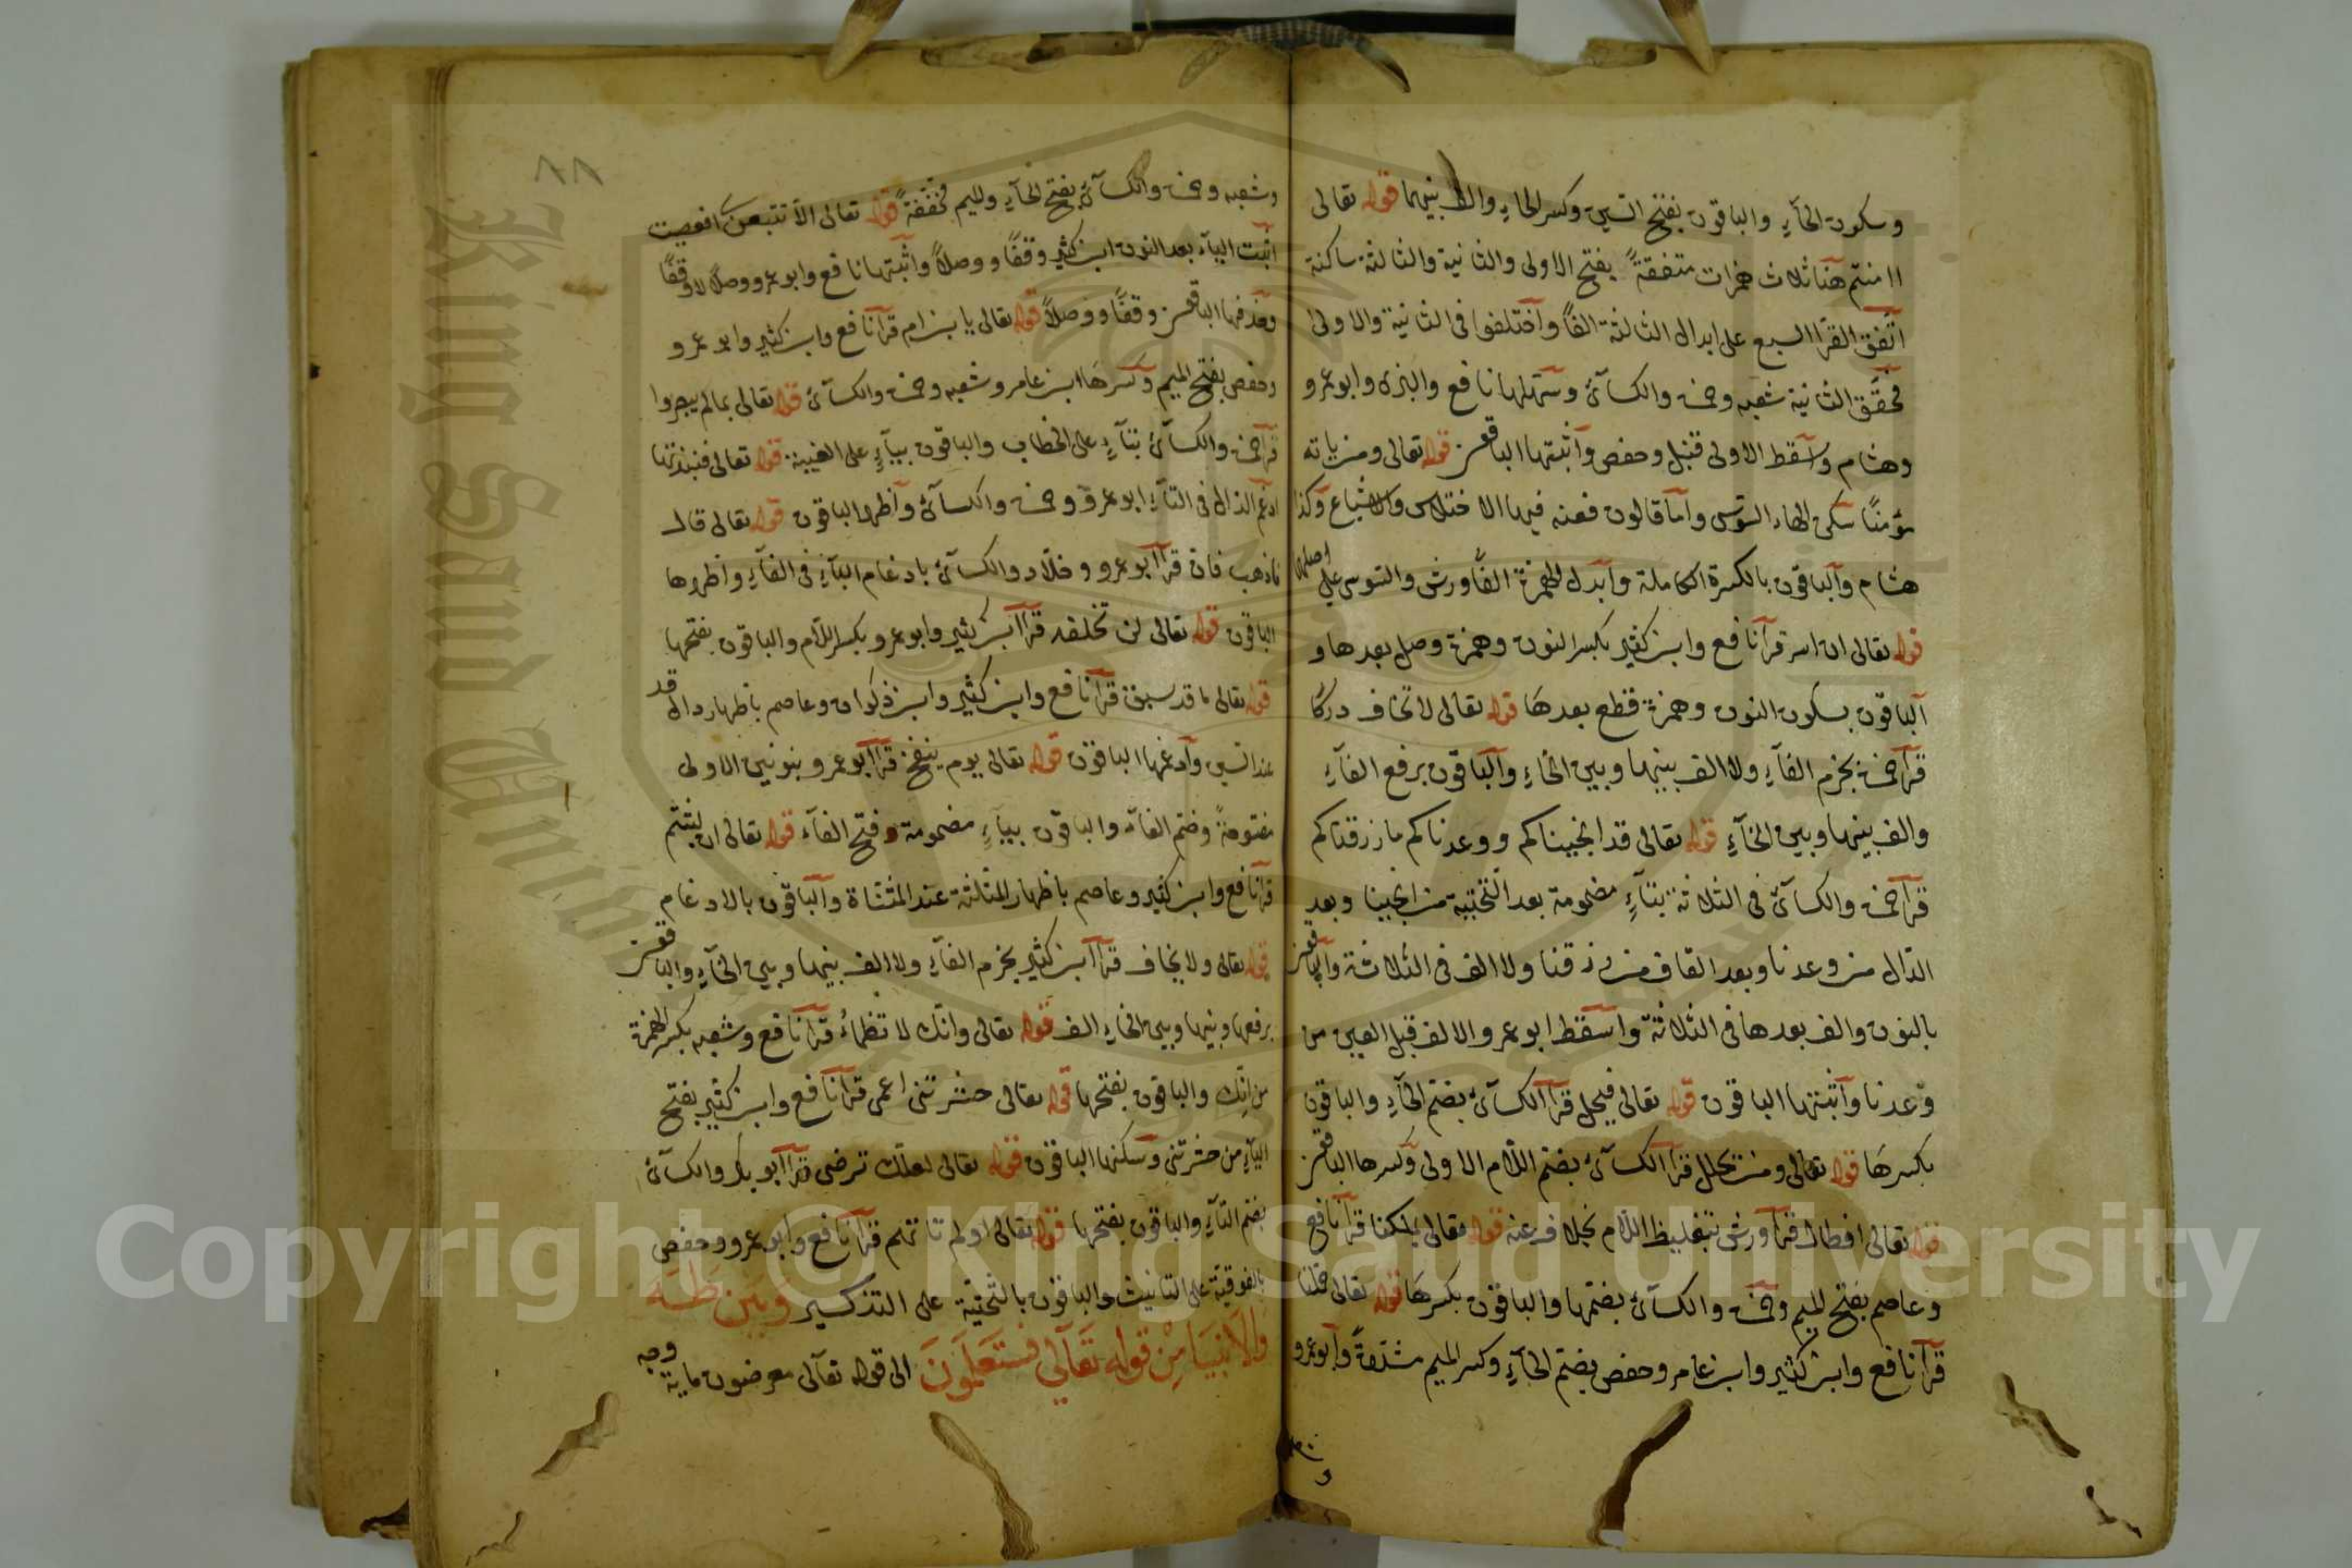 وسكون الحآءِ والباقون بفتح السّين وكسر الحاءِ والف بينهما قوله تعالى
اامنتم هنا ثلاث همزات متفقةً بفتح الاولى والثانية والثالثة ساكنة
اتّفق القرا السبع على ابدال الثالثة الفًا واختلفوا فى الثانية والاولى
فحقّق الثانية شعبه وحمزة والكسآئ وسهّلها نافع والبزى وابو عمرو
وهشام واسقط الاولى قنبل وحفص واثبتها الباقون قوله تعالى ومن ياته
مؤمنًا سكن الهاء السّوسى وامّا قالون فعنه فيها الاختلاس والاشباع وكذا
هشام والباقون بالكسرة الكاملة وابدل الهمزة الفًا ورش والسّوسى على اصلهما
قوله تعالى ان اسر قرآ نافع وابن كثير بكسر النون وهمزة وصل بعدها و
الباقون بسكون النون وهمزة قطع بعدها قوله تعالى لا تخاف دركًا
قرآ حمزة بجزم الفآءِ ولا الف بينها وبين الخاءِ والباقون برفع الفآءِ
والف بينها وبين الخآءِ قوله تعالى قد انجيناكم ووعدناكم ما رزقناكم
قرآ حمزة والكسآئ فى الثلاثة بتآءٍ مضمومة بعد التّحتية من انجينا وبعد
الدّال من وعدنا وبعد القاف من رزقنا ولا الف فى الثلاثة والباقون
بالنون والف بعدها فى الثلاثة واسقط ابو عمرو الالف قبل العين من
وٰعدنا واثبتها الباقون قوله تعالى فيحل قرآ الكسآئ بضم الحآءِ والباقون
بكسرها قوله تعالى ومن يحلل قرآ الكسآئ بضم اللّام الاولى وكسرها الباقون
قوله تعالى افطال قرآ ورش بتغليظ اللّام بخلاف عنه قوله تعالى بملكنا قرآ نافع
وعاصم بفتح الميم وحمزة والكسآئ بضمّها والباقون بكسرها قوله تعالى حملنا
قرآ نافع وابن كثير وابن عامر وحفص بضم الحآءِ وكسر الميم مشدّدةً وابو عمرو
وشعبه وحمزة والكسآئ بفتح الحآءِ والميم مخففةً قوله تعالى الّا تتبعن افعصيت
اثبت اليآء بعد النون ابن كثير وقفًا ووصلًا واثبتها نافع وابو عمرو وصلًا لا وقفًا
وحذفها الباقون وقفًا ووصلًا قوله تعالى يا بنؤم قرآ نافع وابن كثير وابو عمرو
وحفص بفتح الميم وكسرها ابن عامر وشعبه وحمزة والكسآئ قوله تعالى بما لم يبصروا
قرآ حمزة والكسآئ بتآءٍ على الخطاب والباقون بيآءٍ على الغيبة قوله تعالى فنبذتها
ادغم الذال فى التآءِ ابو عمرو وحمزة والكسآئ واظهرها الباقون قوله تعالى قال
فاذهب فان قرآ ابو عمرو وخلّاد والكسآئ بادغام البآءِ فى الفآءِ واظهرها
الباقون قوله تعالى لن تخلفه قرآ ابن كثير وابو عمرو بكسر اللّام والباقون بفتحها
قوله تعالى ما قد سبق قرآ نافع وابن كثير وابن ذكوان وعاصم باظهار دال قد
عند السّين وادغمها الباقون قوله تعالى يوم ينفخ قرآ ابو عمرو بنونين الاولى
مفتوحةً وضمّ الفآء والباقون بيآءٍ مضمومة وفتح الفآء قوله تعالى ان لبثتم
قرآ نافع وابن كثير وعاصم باظهار المثلثة عند المثنّاة والباقون بالادغام
قوله تعالى ولا يخاف قرآ ابن كثير بجزم الفآءِ ولا الف بينها وبين الخآءِ والباقون
برفعها وبينها وبين الخاءِ الف قوله تعالى وانّك لا تظمأ قرآ نافع وشعبه بكسر الهمزة
من انّك والباقون بفتحها قوله تعالى حشرتنى اعمى قرآ نافع وابن كثير بفتح
اليآءِ من حشرتنى وسكنها الباقون قوله تعالى لعلّك ترضى قرآ ابو بكر والكسآئ
بضم التآءِ والباقون بفتحها قوله تعالى اولم تاتهم قرآ نافع وابو عمرو وحفص
بالفوقية على التانيث والباقون بالتحتية على التذكير وبين طه
والانبيا من قوله تعالى فستعلمون الى قوله تعالى معرضون ماية وجه
٨٨
King Saud University
Copyright © King Saud University